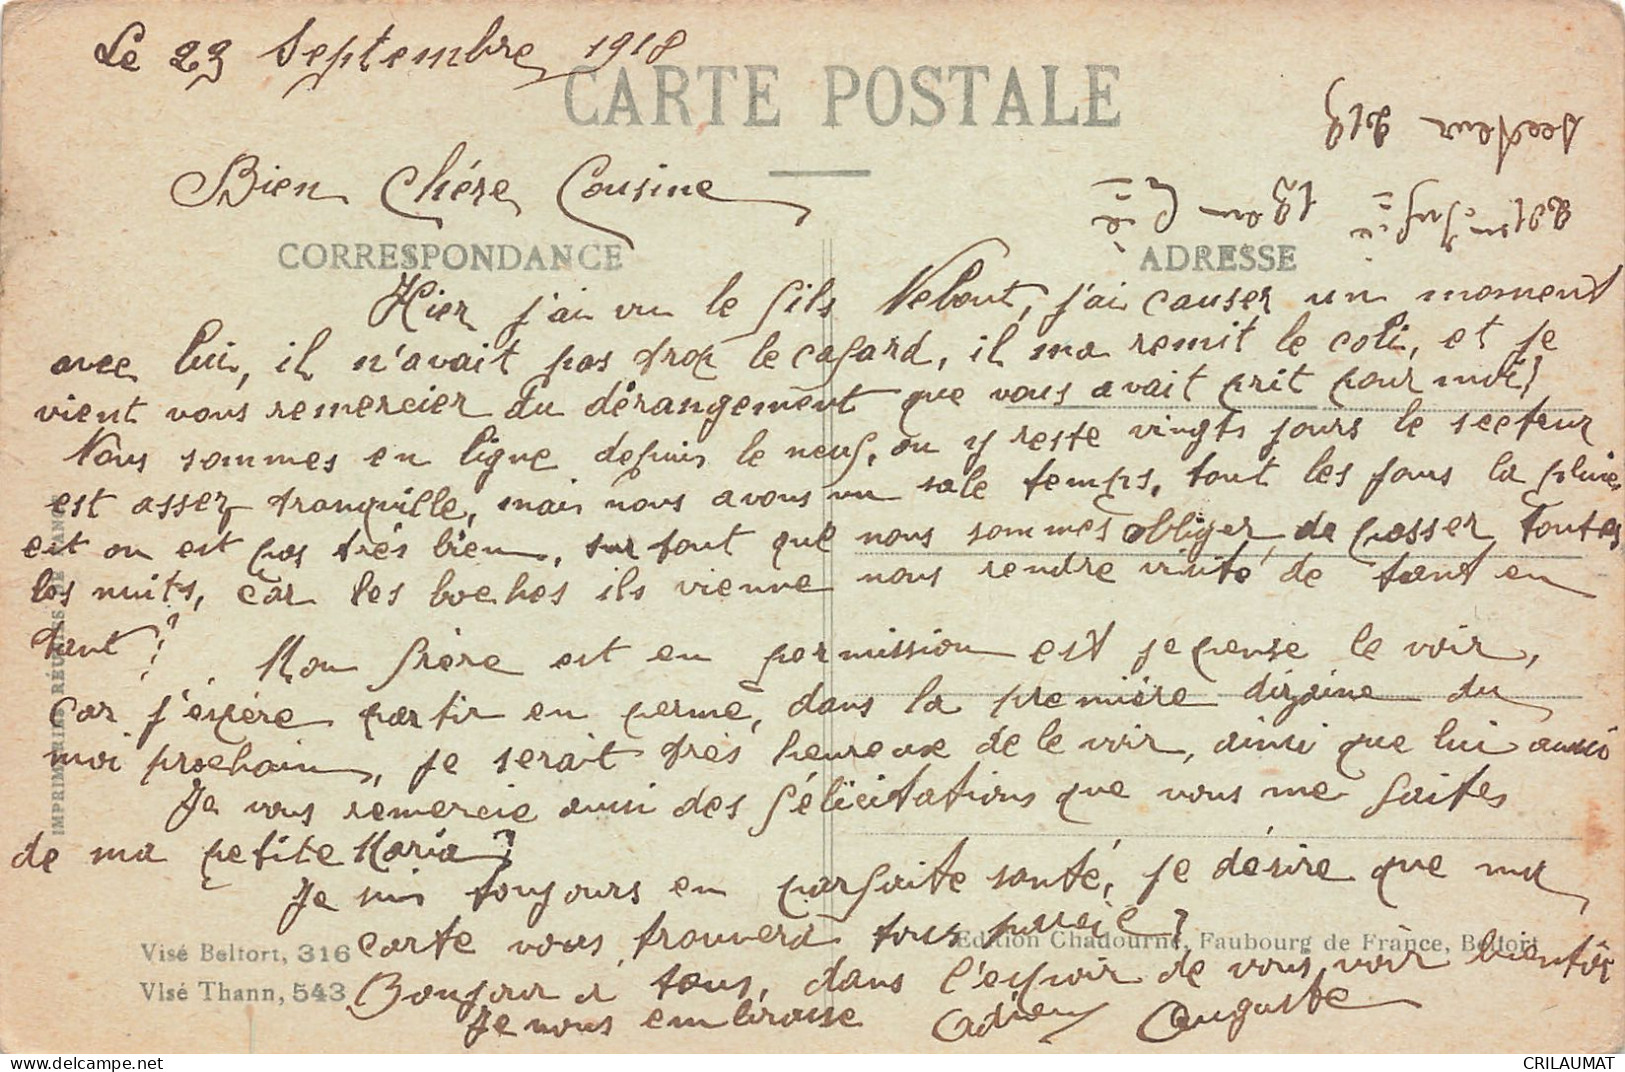 Le 23 Septembre 1918
CARTE POSTALE
secteur 219
221em Infie 18em Cie
Bien Chére Cousine
CORRESPONDANCE
ADRESSE
Hier j'ai vu le fils Nebout, j'ai causer un moment
avec lui, il n'avait pas trop le cafard, il ma remit le coli, et je
vient vous remercier du dérangement que vous avait prit pour moi!
Nous sommes en ligne depuis le neuf, on y reste vingts jours le secteur
est assez tranquille, mais nous avons un sale temps, tout les jours la pluie,
est on est pas trés bien, sur tout que nous sommes obliger de passer toutes
les nuits, car les boches ils vienne nous rendre visite de tant en
tant!
Mon frère est en permission est je pense le voir,
car j'espére partir en perme, dans la premiére dizaine du
moi prochain, je serait très heureux de le voir, ainsi que lui aussi
Je vous remercie aussi des félicitations que vous me faites
de ma petite Maria?
Je suis toujours en parfaite santé, je désire que ma
carte vous trouvera tous pareie?
Bonjour a tous, dans l'espoir de vous voir bientôt
Je vous embrasse Adieu Auguste
Visé Belfort, 316
Visé Thann, 543
Edition Chadourne, Faubourg de France, Belfort
IMPRIMERIES RÉUNIES DE
CRILAUMAT